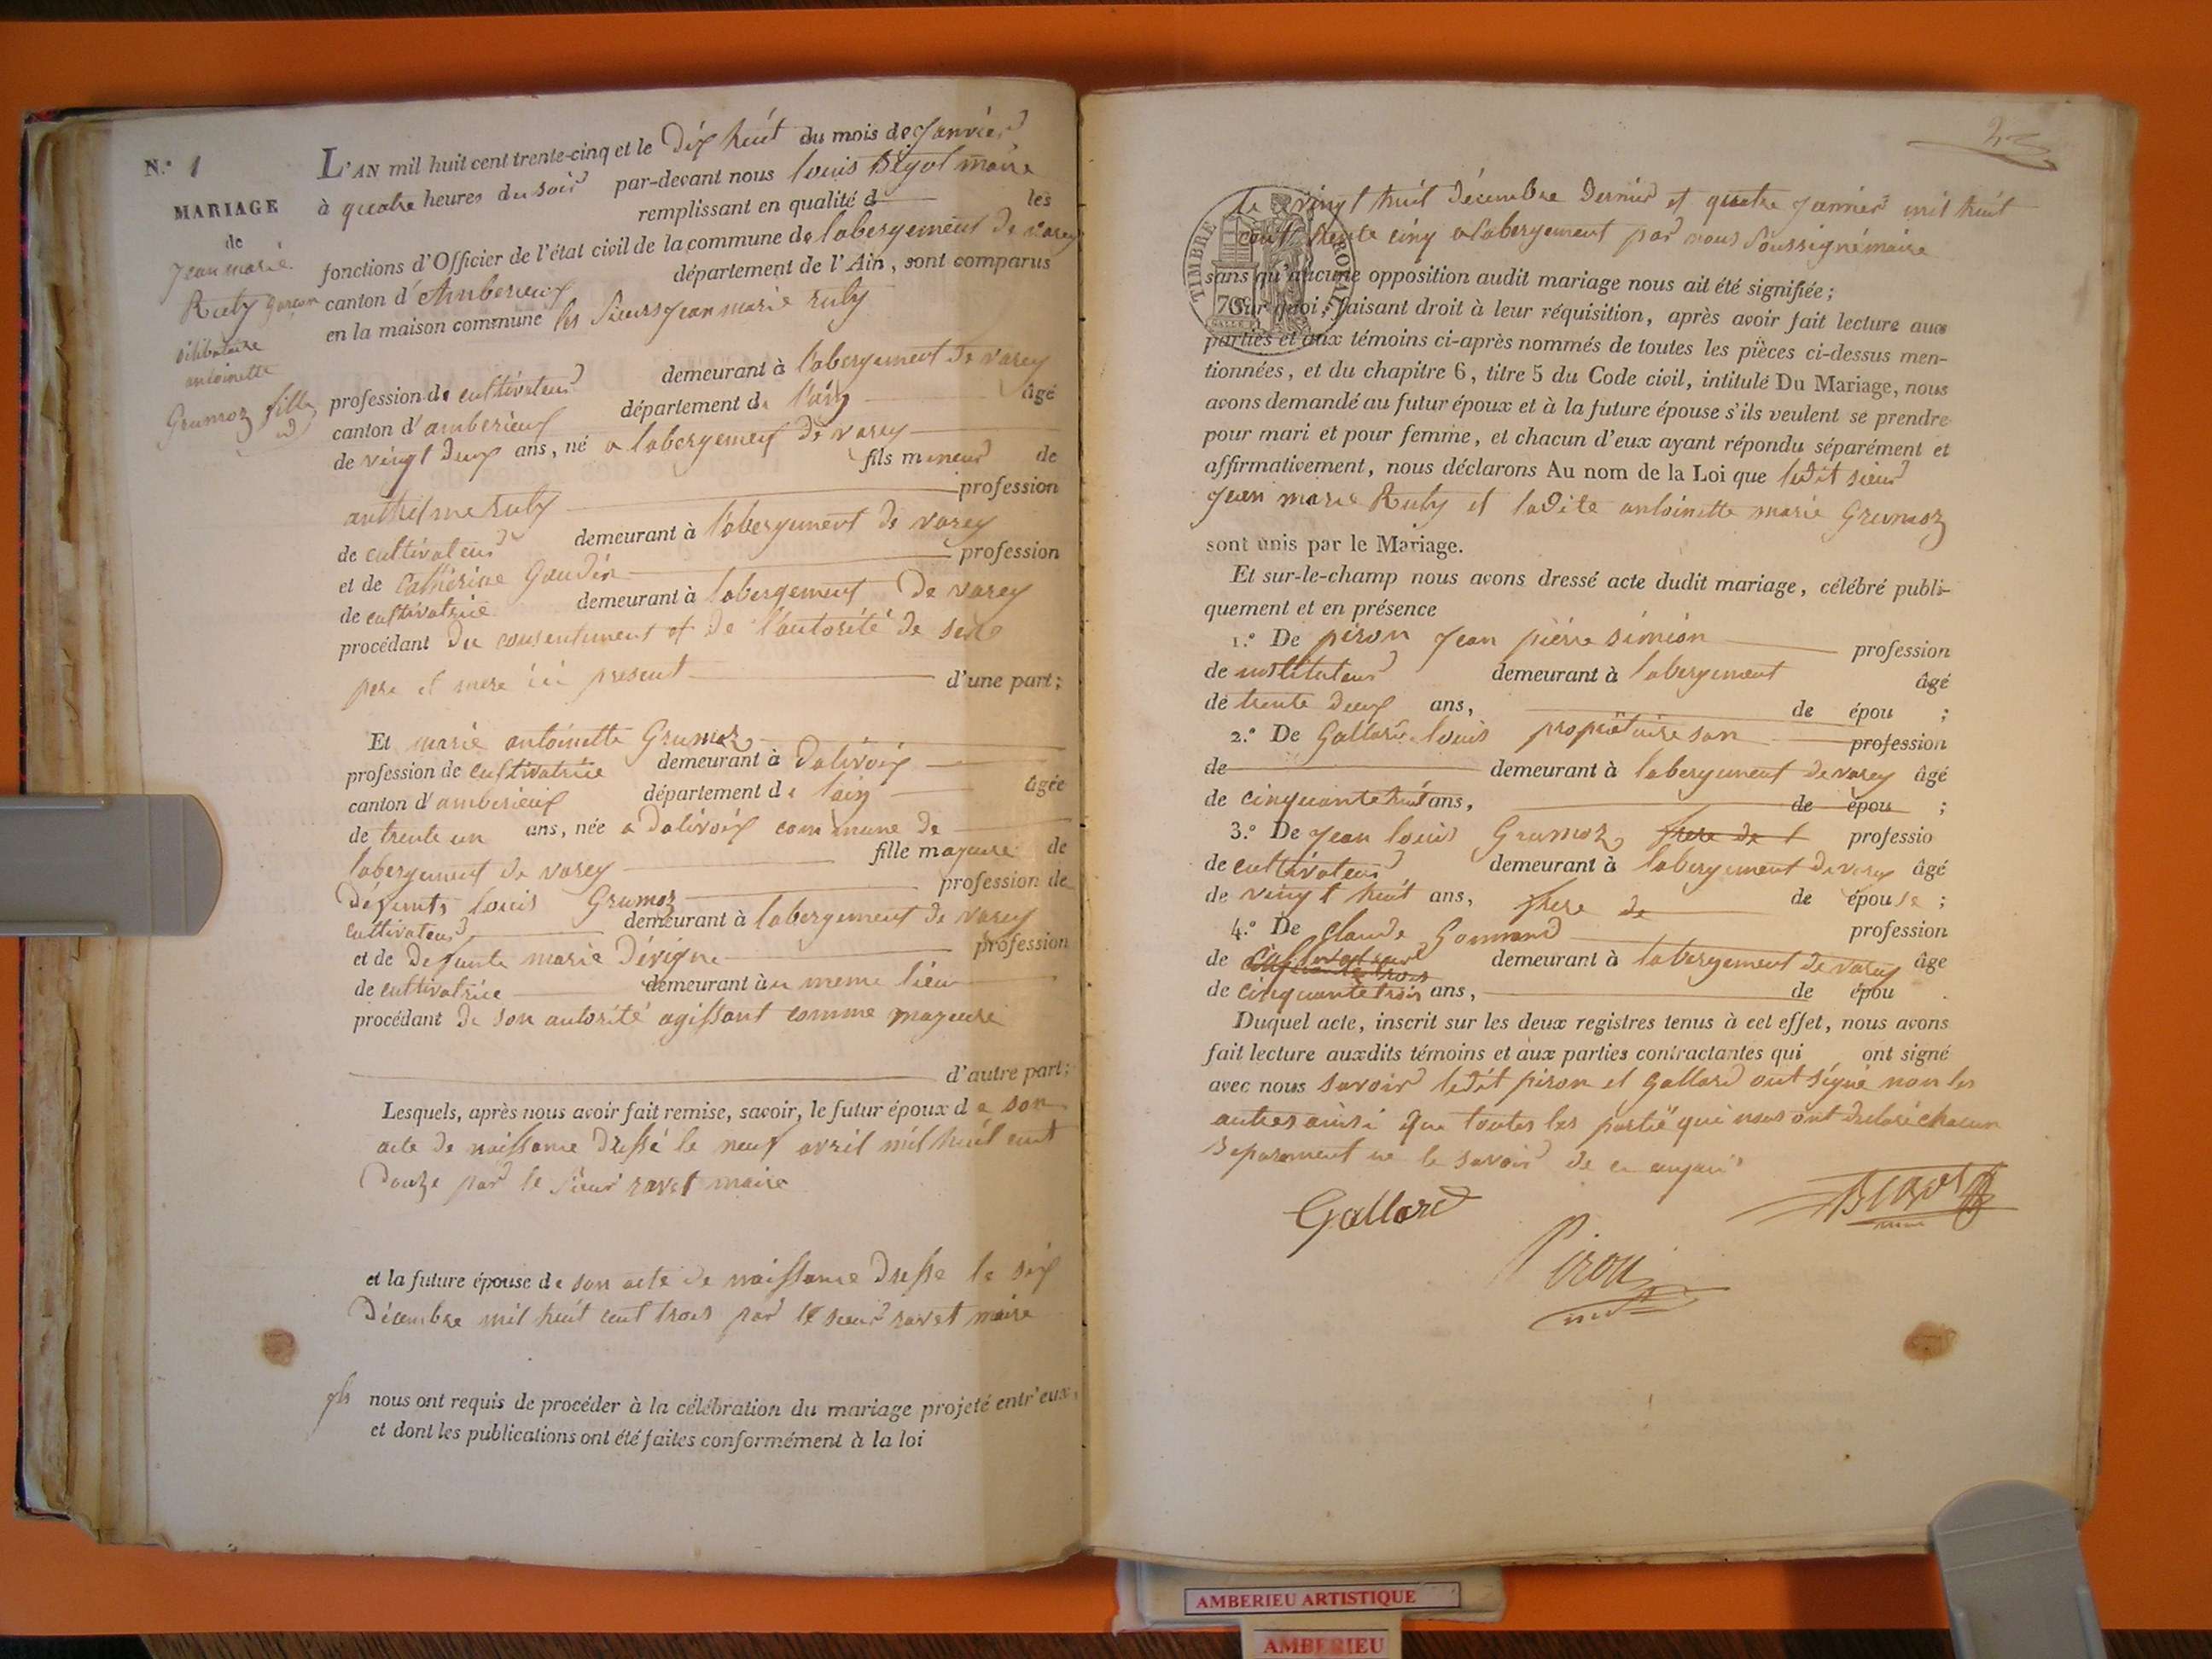 N.° 1
MARIAGE
de
Jean marie
Ruty garçon
célibataire
antoinette
Grumoz fille
L'AN mil huit cent trente-cinq et le Dix huit du mois de Janvier
à quatre heures du soir par-devant nous louis Bigot maire
remplissant en qualité d les
fonctions d'Officier de l'état civil de la commune de labergement de varey
canton d'Amberieux département de l'Ain, sont comparus
en la maison commune les Sieurs Jean marie ruty
profession de cultivateur demeurant à labergement de varey
canton d'amberieux département de lain âgé
de vingt deux ans, né a labergement de varey
fils mineur de
anthelme ruty profession
de cultivateur demeurant à labergement de varey
et de Catherine Gaudin profession
de cultivatrice demeurant à labergement De varey
procédant Du consentement et de l'autorité de ses
pere et mere ici present d'une part;
Et marie antoinette Grumoz
profession de cultivatrice demeurant à Dalivoix
canton d'amberieux département de lain âgée
de trente un ans, née a Dalivoix commune de
labergement de varey fille mayeure de
Défunts louis Grumoz profession de
cultivateur demeurant à labergement de varey
et de Defunte marie Dévigne profession
de cultivatrice demeurant au meme lieu
procédant de son autorité agissant comme mayeure
d'autre part;
Lesquels, après nous avoir fait remise, savoir, le futur époux de son
acte de naissance Dressé le neuf avril mil huit cent
Douze par le sieur ravet maire
et la future épouse de son acte de naissance Dressé le six
Décembre mil huit cent trois par le sieur ravet maire
nous ont requis de procéder à la célébration du mariage projeté entr'eux,
et dont les publications ont été faites conformément à la loi
2
TIMBRE ROYAL
le vingt huit Décembre Dernier et quatre Janvier mil huit
cent trente cinq a labergement par nous Soussigné maire
sans qu'aucune opposition audit mariage nous ait été signifiée;
Sur quoi, faisant droit à leur réquisition, après avoir fait lecture aux
parties et aux témoins ci-après nommés de toutes les pièces ci-dessus men-
tionnées, et du chapitre 6, titre 5 du Code civil, intitulé Du Mariage, nous
avons demandé au futur époux et à la future épouse s'ils veulent se prendre
pour mari et pour femme, et chacun d'eux ayant répondu séparément et
affirmativement, nous déclarons Au nom de la Loi que ledit sieur
Jean marie Ruty et ladite antoinette marie Grumoz
sont unis par le Mariage.
Et sur-le-champ nous avons dressé acte dudit mariage, célébré publi-
quement et en présence
1.° De piron Jean pierre siméon profession
de instituteur demeurant à labergement âgé
de trente deux ans, de épou ;
2.° De Gallard louis propriétaire profession
de demeurant à labergement de varey âgé
de cinquante huit ans, de épou ;
3.° De Jean louis Grumoz frere de l professio
de cultivateur demeurant à labergement de varey âgé
de vingt huit ans, frere de de épouse ;
4.° De Claude Gommand profession
de cultivateur demeurant à labergement de varey âge
de cinquante trois ans, de épou
Duquel acte, inscrit sur les deux registres tenus à cet effet, nous avons
fait lecture auxdits témoins et aux parties contractantes qui ont signé
avec nous savoir ledit piron et Gallard ont signé non les
autres ainsi que toutes les partie qui nous ont declaré chacun
séparement ne le savoir de ce enquis
Gallard
Bigot
Piron
AMBERIEU ARTISTIQUE
AMBERIEU